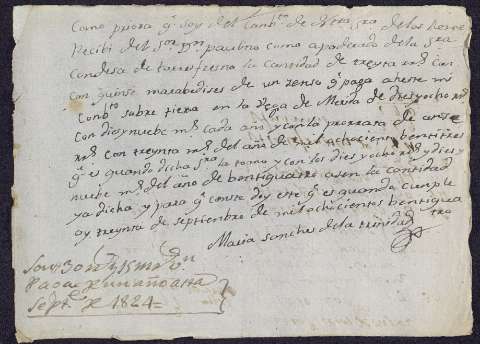 Como priora q.e soy del Conv.to de Ntra Sra de los
Recibi del S.or D.n paulino como apoderado de la Sra
Condesa de torrefresno la Cantidad de treynta rs Con
Con quinse marabedises de un senso q.e paga a heste mi
Conb.to sobre tierra en la Vega de Maria de Diesyocho rs
Con diesynuebe ms cada año y con la prorrata de onse
rrs Con treynta ms del año de milochocientos bentitres
q.e es quando dicha Sra la tomo y con los dies y ocho rs y dies y
nuebe ms del año de bentiquatro asen la Cantidad
ya dicha y para q.e conste doy este q.e es quando cumple
oy treynta de septiembre de milochocientos bentiqua
tro
Maria Sanches de la trinidad
Son 30 rs y 15 mrs vn
Paga de un año asta
Sept.e de 1824=